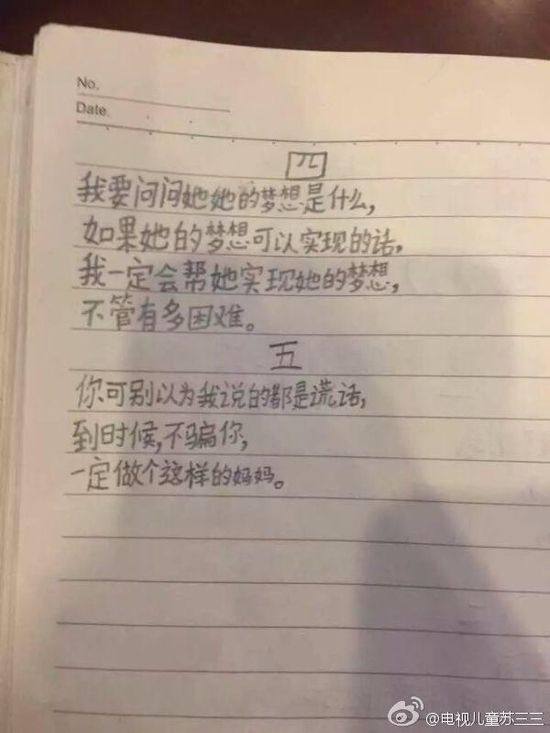 No.
Date.
四
我要问问她她的梦想是什么,
如果她的梦想可以实现的话,
我一定会帮她实现她的梦想,
不管有多困难。
五
你可别以为我说的都是谎话,
到时候,不骗你,
一定做个这样的妈妈。
@电视儿童苏三三